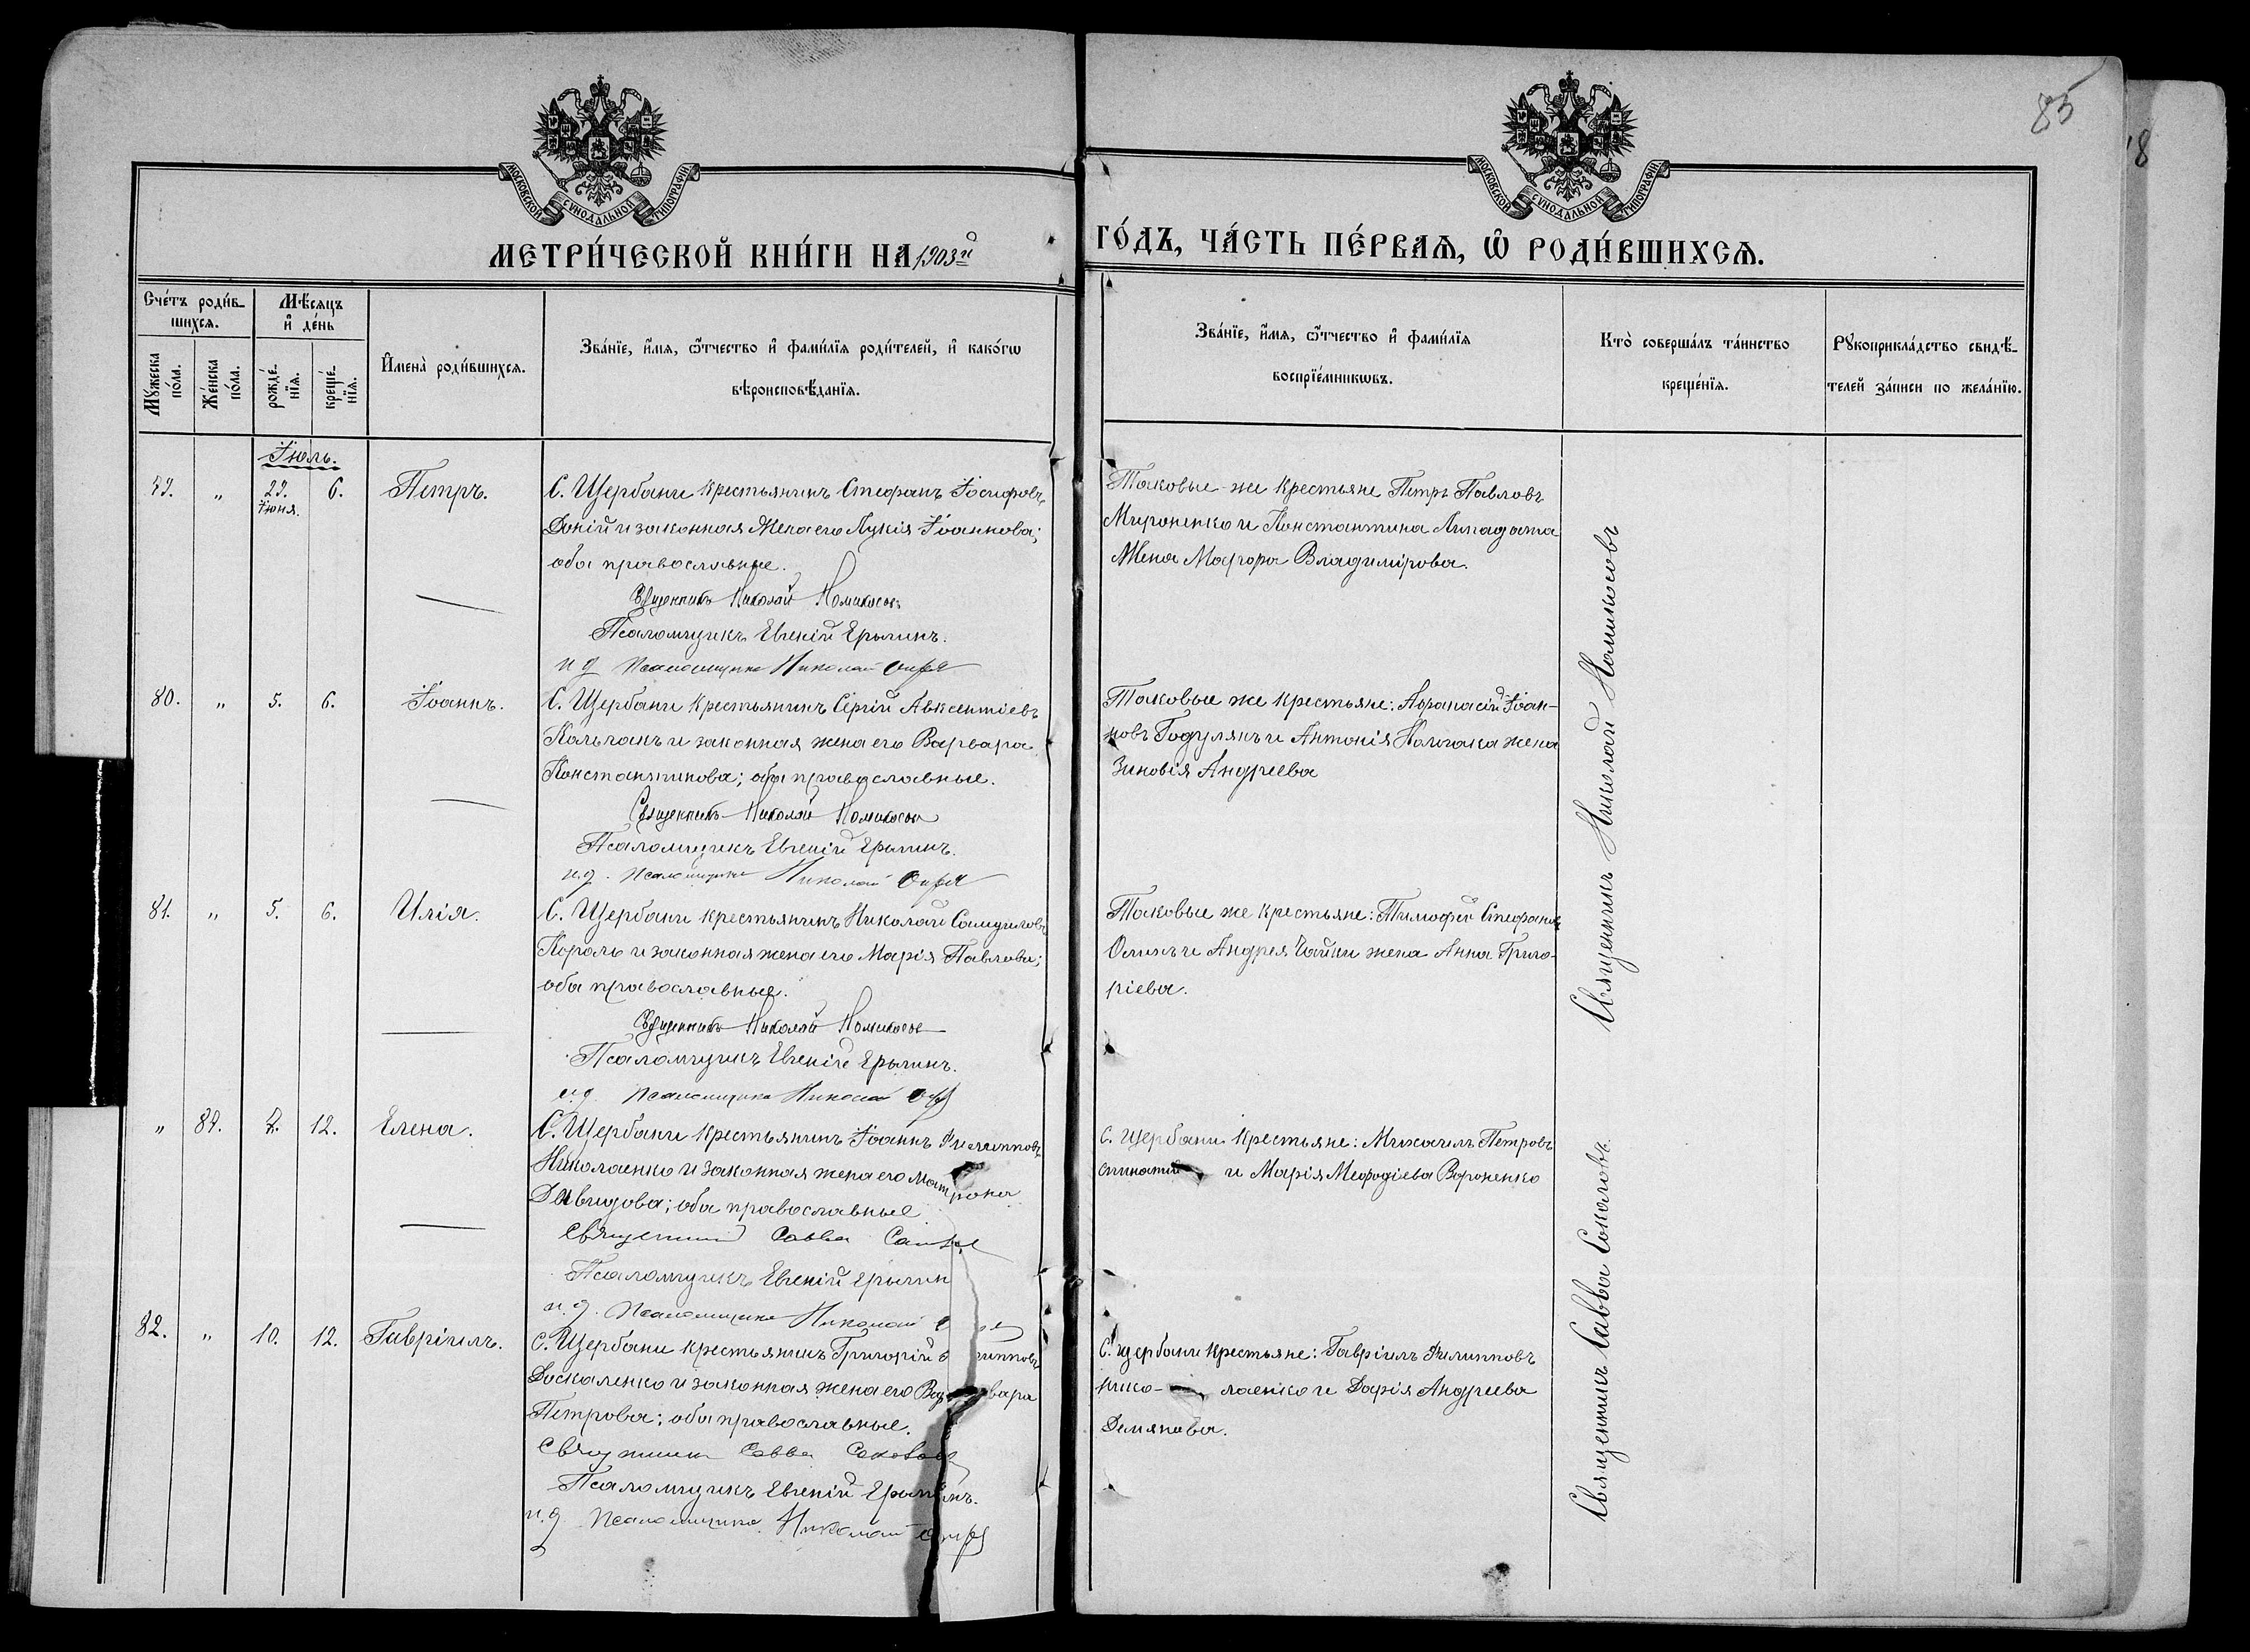 85
18
МОСКОВСКОЙ СѴНОДАЛЬНОЙ ТИПОГРАФІИ
МОСКОВСКОЙ СѴНОДАЛЬНОЙ ТИПОГРАФІИ
МЕТРИ́ЧЕСКОЙ КНИ́ГИ НА 1903й
ГО́ДЪ, ЧА́СТЬ ПЕ́РВАѦ, Ѡ РОДИ́ВШИХСѦ.
Сче́тъ роди́в-
шихсѧ.
Мѣ́сѧцъ
и҆ де́нь
Мꙋ́жеска
по́ла.
Же́нска
по́ла.
рожде́-
нїѧ.
креще́-
нїѧ.
И҆мена̀ роди́вшихсѧ.
Зва́нїе, и҆́мѧ, ѻ҆́тчество и҆ фами́лїѧ роди́телей, и҆ како́гѡ
вѣроисповѣ́данїѧ.
Зва́нїе, и҆́мѧ, ѻ҆́тчество и҆ фами́лїѧ
воспрїе́мникѡвъ.
Кто̀ соверша́лъ та́инство
креще́нїѧ.
Рꙋкоприкла́дство свидѣ́-
телей за́писи по жела́нїю.
Іюль.
79. " 29. 6. Петръ.
Іюня.
С. Щербани крестьянинъ Стефанъ Іосифовъ
Доній и законная жена его Лукія Іоаннова;
оба православные.
Священникъ Николай Номикосовъ
Псаломщикъ Евгеній Ерылинъ.
и д псаломщика Николай
Таковые-же крестьяне Петръ Павловъ
Мироненко и Константина
Жена Мафора Владимірова.
80. " 5. 6. Іоаннъ.
С. Щербани крестьянинъ Сергій Авксентіевъ
Колчакъ и законная жена его Варвара
Константинова; оба православные.
Священникъ Николай Номикосовъ
Псаломщикъ Евгеній Ерылинъ.
и.д. псаломщика Николай
Таковые же крестьяне: Афанасій Іоан-
новъ Годулянъ и Антонія Колчака жена
Зиновія Андреева
81. " 5. 6. Илія.
С. Щербани крестьянинъ Николай Самуиловъ
Король и законная жена его Марія Павлова;
оба православные.
Священникъ Николай Номикосовъ
Псаломщикъ Евгеній Ерылинъ.
и.д. псаломщика Николай
Таковые же крестьяне: Тимофей Стефановъ
и Андрея Чайки жена Анна Григо-
ріева.
Священникъ Николай Номикосовъ
" 82. 7. 12. Елена.
С. Щербани крестьянинъ Іоаннъ Филипповъ
Николаенко и законная жена его Матрона
Давидова; оба православные
Священникъ Савва
Псаломщикъ Евгеній Ерылин
и.д. псаломщика Николай
С. Щербани крестьяне: Михаилъ Петровъ
и Марія Меѳодіева Вороненко
82. " 10. 12. Гавріилъ.
С. Щербани крестьянинъ Григорій
Доскаленко и законная жена его Варвара
Петрова; оба православные.
Священникъ Савва Соколовъ
Псаломщикъ Евгеній Ерылинъ.
и.д псаломщика Николай
С. Щербани крестьяне: Гавріилъ Филипповъ
нико- лаенко и Дарія Андреева
Демянова.
Священникъ Савва Соколовъ